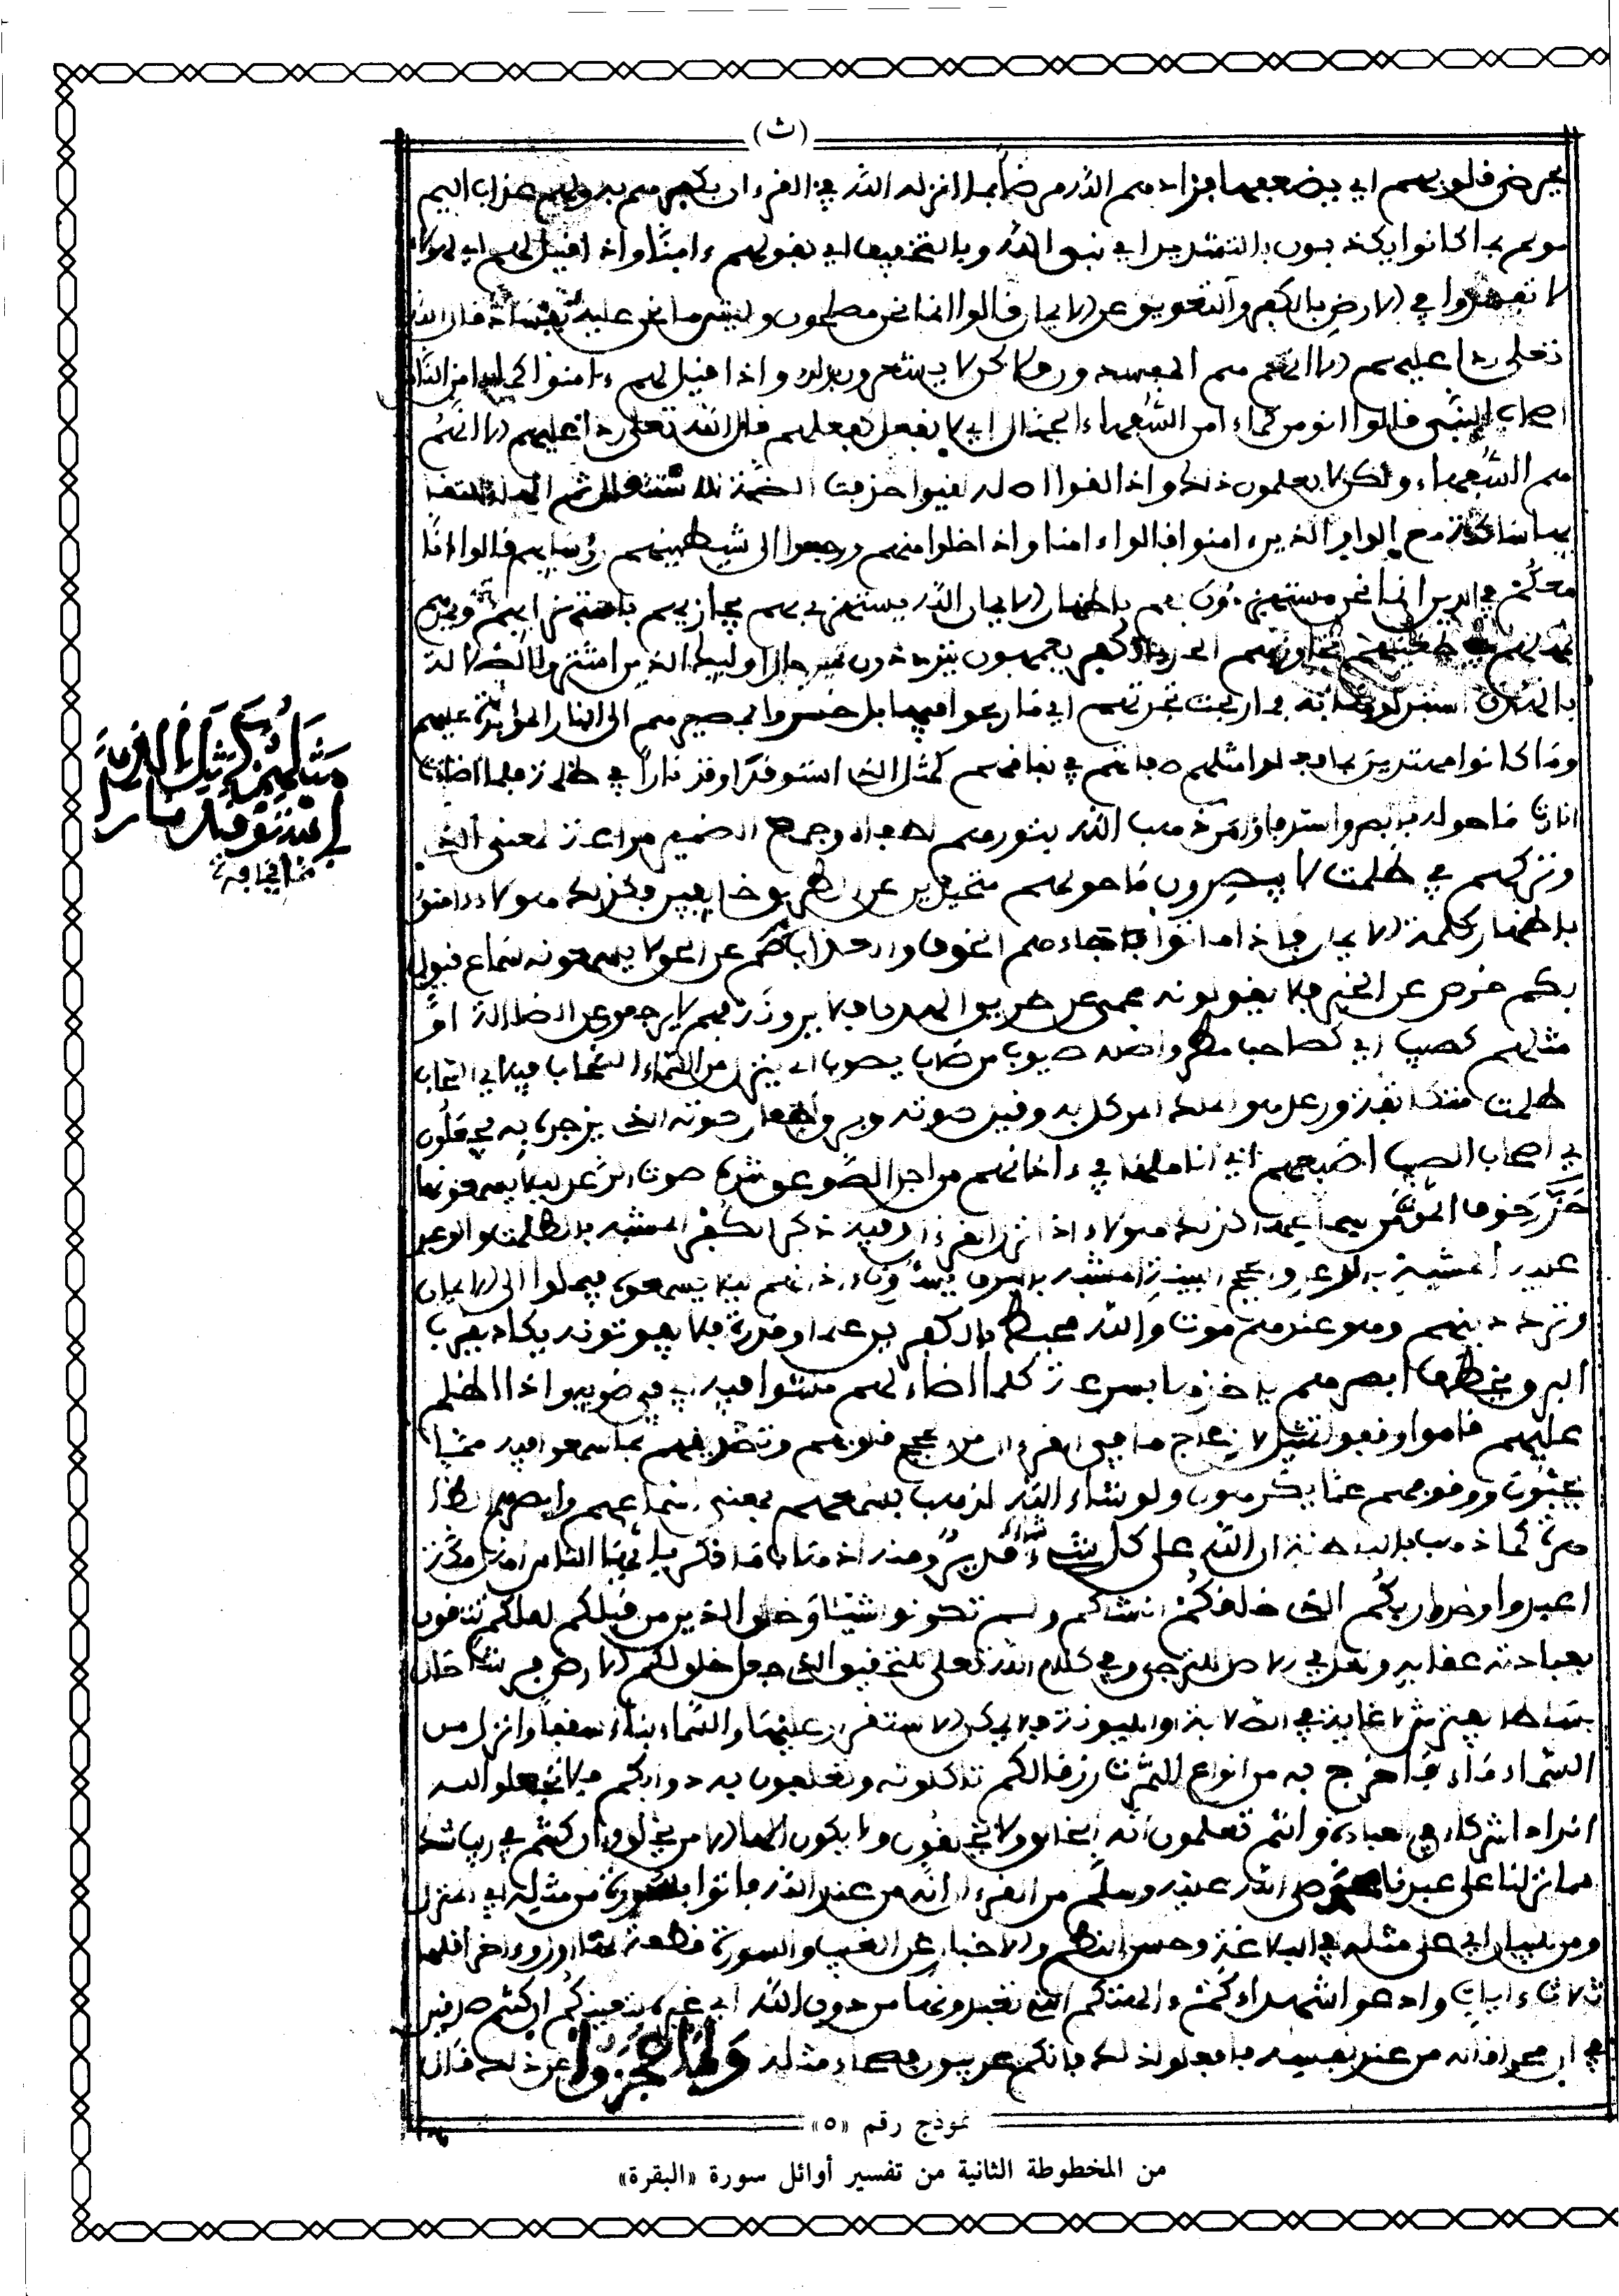 (ث)
يمرض قلوبهم اي يضعفها فزادهم الله مرضا بما انزله الله في القرءان بكفرهم به ولهم عذاب اليم
مولم بما كانوا يكذبون بالتشديد اي نبي الله وبالتخفيف اي بقولهم ءامنا واذا قيل لهم اي لهولاء
لا تفسدوا في الارض بالكفر والتعويق عن الايمان قالوا انما نحن مصلحون وليس ما نحن عليه بفساد قال الله
تعلى ردا عليهم الا انهم هم المفسدون ولاكن لا يشعرون بذلك واذا قيل لهم ءامنوا كما ءامن الناس
اصحاب النبي قالوا انومن كماء امن السفهاء الجهال اي لا نفعل كفعلهم قال الله تعلى ردا عليهم الا انهم
هم السفهاء ولكن لا يعلمون ذلك واذا لقوا اصله لقيوا حذفت الضمة
مع الواو الذين ءامنوا قالوا ءامنا واذا خلوا منهم ورجعوا الى شيطينهم رؤسايهم قالوا انا
معكم في الدين انما نحن مستهزءون بهم باظهار الايمان الله يستهزئ بهم يجازيهم باستهزايهم ويمدهم
يمهلهم في طغينهم تجاوزهم الحد بالكفر يعمهون يترددون تحيرا حال اوليك الذين اشتروا الضلالة
بالهدى استبدلوها به فما ربحت تجرتهم اي ما ربحوا فيها بل خسروا لمصيرهم الى النار المؤبدة عليهم
وما كانوا مهتدين فيما فعلوا مثلهم صفتهم في نفاقهم كمثل الذي استوقد اوقد نارا في ظلمة فلما اضاءت
انارت ما حوله فابصر واستدفا وامن ذهب الله بنورهم اطفاه وجمع الضمير مراعاة لمعنى الذي
وتركهم في ظلمت لا يبصرون ما حولهم متحيرين عن الطريق خايفين فكذلك هولاء ءامنوا
باظهار كلمة الايمان فاذا ماتوا جاءهم الخوف والعذاب صم عن الحق لا يسمعونه سماع قبول
بكم خرس عن الخير فلا يقولونه عمي عن طريق الهدى فلا يرونه فهم لا يرجعون عن الضلالة او
مثلهم كصيب اي كصاحب مطر واصله صيوب من صاب يصوب اي ينزل من السماء السحاب فيه اي السحاب
ظلمت متكاثفة ورعد هو الملك الموكل به وقيل صوته وبرق لمعان صوته الذي يزجره به يجعلون
اي اصحاب الصيب اصبعهم اي اناملها في ءاذانهم من اجل الصوعق شدة صوت الرعد ليلا يسمعونها
حذر خوف الموت من سماعها كذلك هولاء اذا نزل القرءان وفيه ذكر الكفر المشبه بالظلمت والوعيد
عليه المشبه بالرعد والحجج البينة المشبهة بالبرق يسدون ءاذانهم ليلا يسمعوه فيميلوا الى الايمان
وترك دينهم وهو عندهم موت والله محيط بالكفرين علما وقدرة فلا يفوتونه يكاد يقرب
البرق يخطف ابصرهم ياخذها بسرعة كلما اضاء لهم مشوا فيه اي في ضويه واذا اظلم
عليهم قاموا وقفوا تمثيل لازعاج ما في القرءان من الحجج قلوبهم وتصديقهم بما سمعوا فيه مما
يحبون ووقوفهم عما يكرهون ولو شاء الله لذهب بسمعهم بمعنى اسماعهم وابصرهم الظا
هرة كما ذهب بالباطنة ان الله على كل شيء شاءه قدير ومنه اذهاب ما ذكر يايها الناس اهل مكة
اعبدوا وحدوا ربكم الذي خلقكم انشاكم ولم تكونوا شيئا وخلق الذين من قبلكم لعلكم تتقون
بعبادته عقابه ولعل في الاصل للترجي وفي كلام الله تعلى للتحقيق الذي جعل خلق لكم الارض فرشا حال
بساطا يفترش لا غاية في الصلابة والليونة فلا يمكن الاستقرار عليها والسماء بناء سقفا وانزل من
السماء ماء فاخرج به من انواع الثمرت رزقا لكم تاكلونه وتعلفون به دوابكم فلا تجعلوا لله
اندادا شركاء في العبادة وانتم تعلمون انه الخالق ولا يخلقون ولا يكون الها الا من يخلق وان كنتم في ريب شك
مما نزلنا على عبدنا محمد صلى الله عليه وسلم من القرءان انه من عند الله فاتوا بسورة من مثله اي المنزل
ومن للبيان اي هي مثله في البلاغة وحسن النظم والاخبار عن الغيب والسورة قطعة لها اول وءاخر اقلها
ثلاث ءايات وادعوا شهداءكم ءالهتكم التي تعبدونها من دون الله اي غيره لتعينكم ان كنتم صدقين
في ان محمدا قاله من عند نفسه فافعلوا ذلك فانكم عربيون فصحاء مثله ولما عجزوا عن ذلك قال
مثلهم كمثل الذي
استوقد نارا
نموذج رقم «٥»
من المخطوطة الثانية من تفسير أوائل سورة «البقرة»